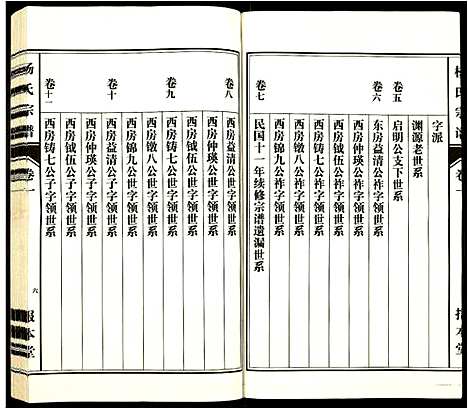 字派
渊源老世系
卷五
启明公支下世系
卷六
东房益清公祚字领世系
西房仲瑛公祚字领世系
西房钺伍公祚字领世系
西房镦八公祚字领世系
西房铸七公祚字领世系
西房锦九公祚字领世系
卷七
民国十一年续修宗谱遗漏世系
卷八
西房益清公世字领世系
西房仲瑛公世字领世系
卷九
西房钺伍公世字领世系
西房铸七公世字领世系
西房镦八公世字领世系
卷十
西房锦九公世字领世系
西房益清公子字领世系
西房仲瑛公子字领世系
卷十一
西房钺伍公子字领世系
西房铸七公子字领世系
杨氏宗谱
卷一
六
报本堂